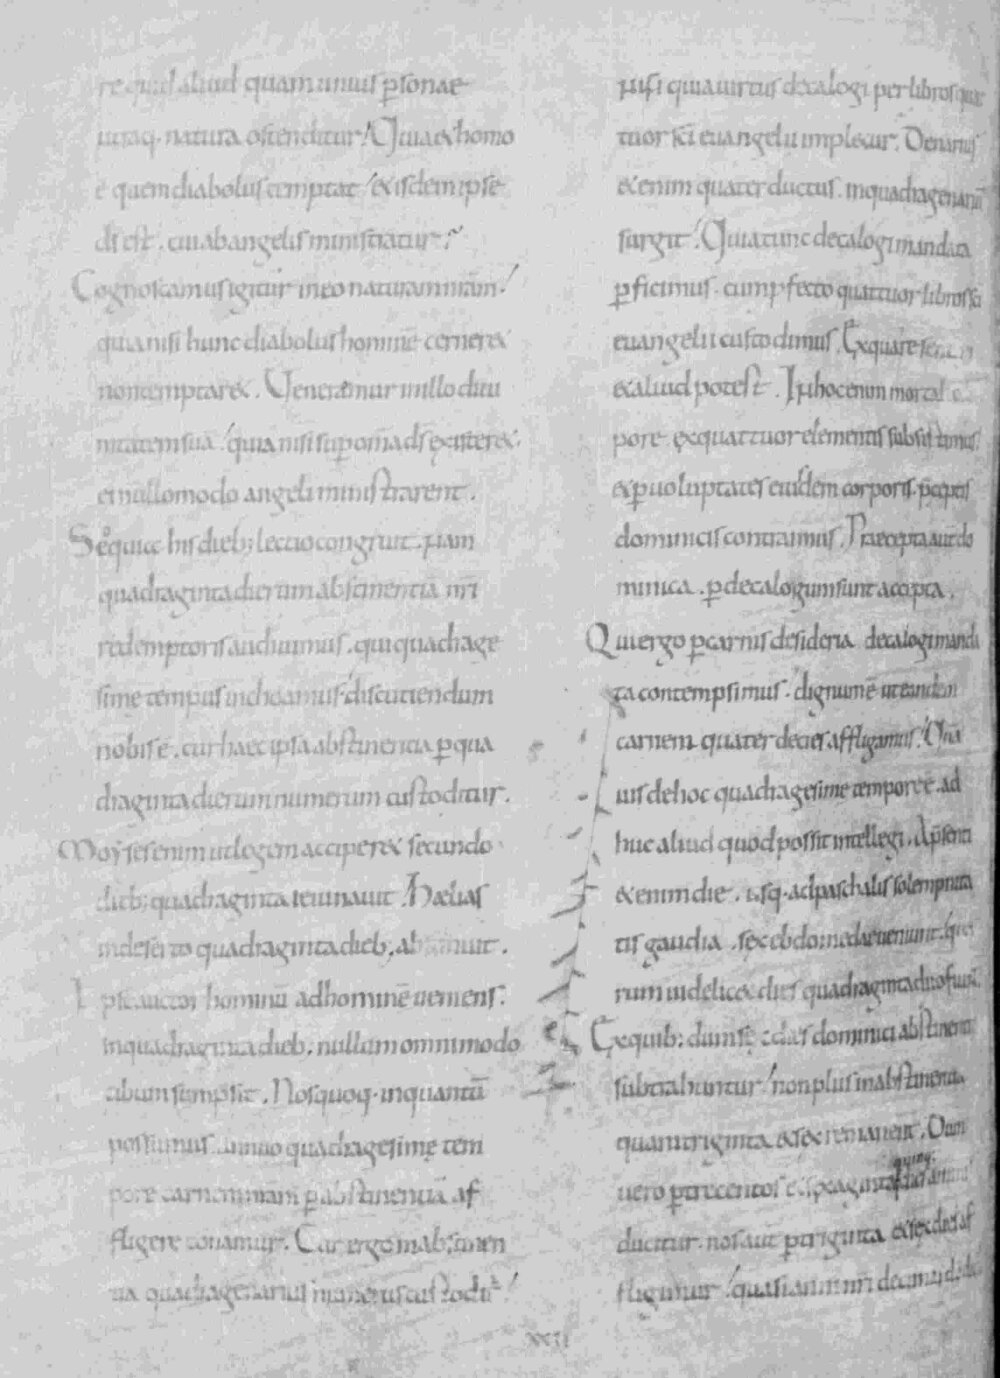 re quid aliud quam unius p̲sonae
utraq· natura ostenditur? Quia & homo
ē quem diabolus temptat / & isdem ipse
d̅s est . cui ab angelis ministratur ?
Cognoscamus igitur in eo naturam n̅ram /
quia nisi hunc diabolus hominē cerner&
non temptar& . Veneramur in illo diui
nitatem suā / quia nisi sup om̅a d̅s exister&·
ei nullo modo angeli ministrarent .
Sed quia his dieb; lectio congruit . nam
quadraginta dierum abstinentiā n̅ri
redemptoris audiuimus . qui quadrage
sime tempus inchoamus· discutiendum
nobis ē . cur haec ipsa abstinentia p̲ qua
draginta dierum numerum custoditur .
Moyses enim ut legem acciper& secundo
dieb; quadraginta ieiunauit . Haelias
in deserto quadraginta dieb; abstinuit .
Ipse auctor hominū ad hominē ueniens .
in quadraginta dieb; nullum omnimodo
cibum sumpsit . Nos quoq· inquantū
possumus annuo quadragesime tem
pore carnem n̅ram p̲ abstinentiā af
fligere conamur . Cur ergo in abstinen
tia quadragenarius numerus custodit̅ /
nisi quia uirtus decalogi per libros quat
tuor sc̅i euangelii impletur . Denarius
& enim quater ductus . in quadragenariū
surgit / Quia tunc decalogi mandata
p̲ficimus . cum p̲fecto quattuor libros sc̅i
euangelii custodimus . Ex qua re
& aliud potest . In hoc enim mortal
pore ex quattuor elementis subsistimus
& p̲ uoluptates eiusdem corporis· p̅ceptis
dominicis contraimus . Praecepta aut̅ do
minica . p̲ decalogum sunt accepta .
Qui ergo p̲ carnis desideria decalogi manda
ta contempsimus . dignum ē ut eandem
carnem quater decies affligamus / Quā
uis de hoc quadragesime tempore ē . ad
huc aliud quod possit intellegi . A p̅senti
& enim die . usq· ad paschalis solempnita
tis gaudia . sex ebdomade ueniunt . quo
rum uidelic& dies quadraginta duo fiunt
Ex quib; dum sex dies dominici abstinentie
subtrahuntur / non plus in abstinentia
quam triginta & sex remanent . Dum
uero p̲ trecentos & sexaginta quinq· dies annus
ducitur . nos aut̅ p̲ triginta & sex dies af
fligimur / quasi anni n̅ri decimas d̅o
xxii